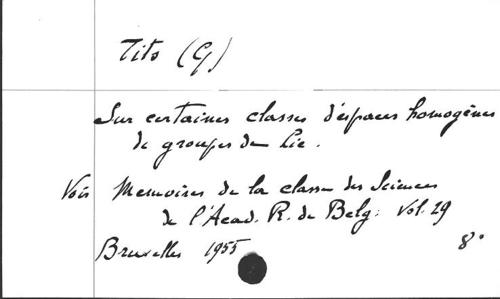 Tits (G)
Sur certaines classes d'espaces homogènes
de groupes de Lie.
Voir Memoires de la classe des Sciences
de l'Acad. R. de Belg. Vol. 29
Bruxelles 1955 8°